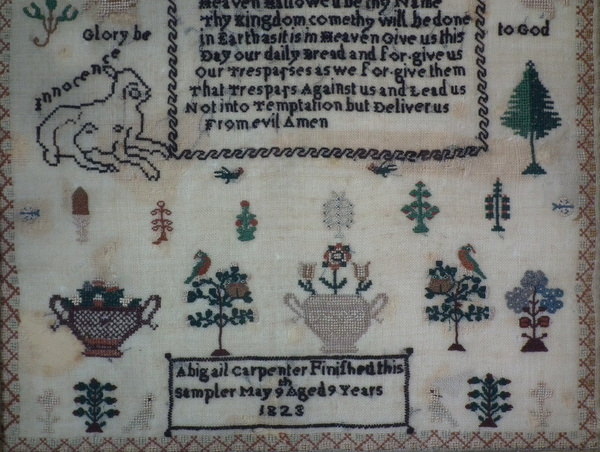 Heaven Hallowed be thy Name
Thy Kingdom come thy will be done
in Earth as it is in Heaven Give us this
Day our daily Bread and for-give us
Our Trespaſses as we for-give them
That Trespaſs Against us and Lead us
Not into Temptation but Deliver us
From evil Amen
Glory be
to God
innocence
Abigail Carpenter Finiſhed this
sampler May 9th Aged 9 Years
1828